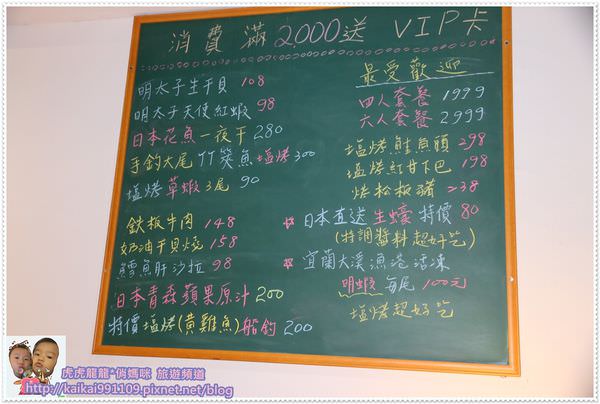 消費滿2000送 VIP卡
明太子生干貝 108
明太子天使紅蝦 98
日本花魚一夜干 280
手釣大尾竹筴魚塩烤 300
塩烤草蝦3尾 90
鉄板牛肉 148
奶油干貝燒 158
鱈魚肝沙拉 98
日本青森蘋果原汁 200
特價塩烤(黃雞魚)船釣 200
最受歡迎
四人套餐 1999
六人套餐 2999
塩烤鮭魚頭 298
塩烤紅甘下巴 198
烤松板豬 238
日本直送生蠔特價 80
(特調醬料超好吃)
宜蘭大溪漁港活凍
明蝦每尾100元
塩烤超好吃
虎虎龍龍*俏媽咪 旅遊頻道
http://kaikai991109.pixnet.net/blog